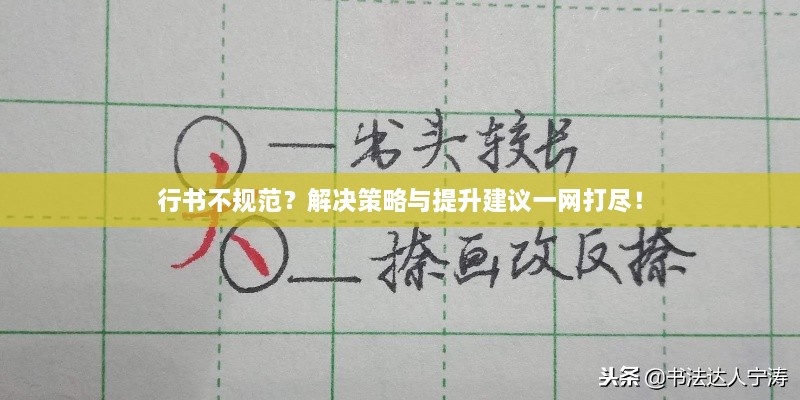 出头较长
行书不规范？解决策略与提升建议一网打尽！
大
捺画改反捺
头条 @书法达人宁涛